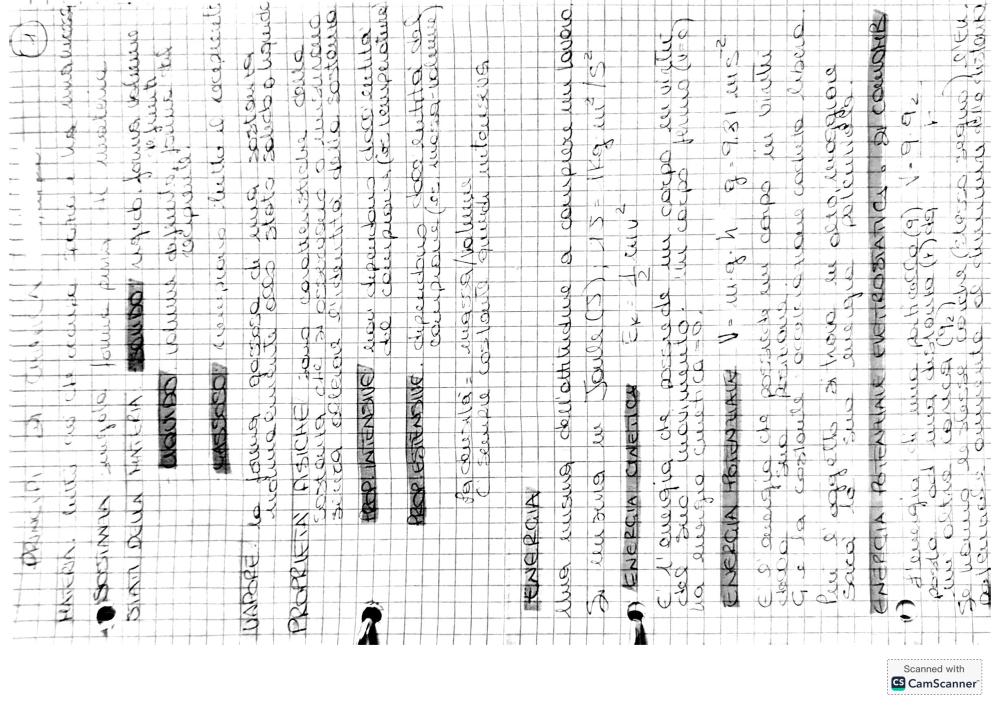 1
MATERIA: tutto ciò che occupa spazio e ha una massa
SOSTANZA singola forma pura di materia
STATI DELLA MATERIA SOLIDO rigido, forma, volume definiti
LIQUIDO volume definito, forma del recipiente
GASSOSO riempiono tutto il recipiente
VAPORE: la forma gassosa di una sostanza
normalmente allo stato solido o liquido
PROPRIETÀ FISICHE sono caratteristiche della
sostanza che si osservano o misurano
senza alterare l'identità della sostanza
PROP. INTENSIVE non dipendono dall'entità
del campione (es temperatura)
PROP. ESTENSIVE dipendono dall'entità del
campione (es massa, volume)
la densità = massa/volume
è sempre costante quindi intensiva
ENERGIA
una misura dell'attitudine a compiere un lavoro
Si misura in Joule (J), 1J = 1Kg m²/s²
1) ENERGIA CINETICA Ek = 1/2 m v²
È l'energia che possiede un corpo in virtù
del suo movimento. Un corpo fermo (v=0)
ha energia cinetica = 0.
ENERGIA POTENZIALE V = m·g·h g = 9.81 m s⁻²
È l'energia che possiede un corpo in virtù
della sua posizione.
G è la costante accelerazione caduta libera.
Più l'oggetto si trova in alto, maggiore
sarà la sua energia potenziale.
ENERGIA POTENZIALE ELETTROSTATICA o DI COULOMB
1) l'energia di una particella (q) V = q₁ q₂ / r
posta ad una distanza (r) da
un'altra carica (q₂)
Se hanno le stesse cariche (stesso segno) l'En.
potenziale aumenta al diminuire della distanza
Scanned with
CS CamScanner